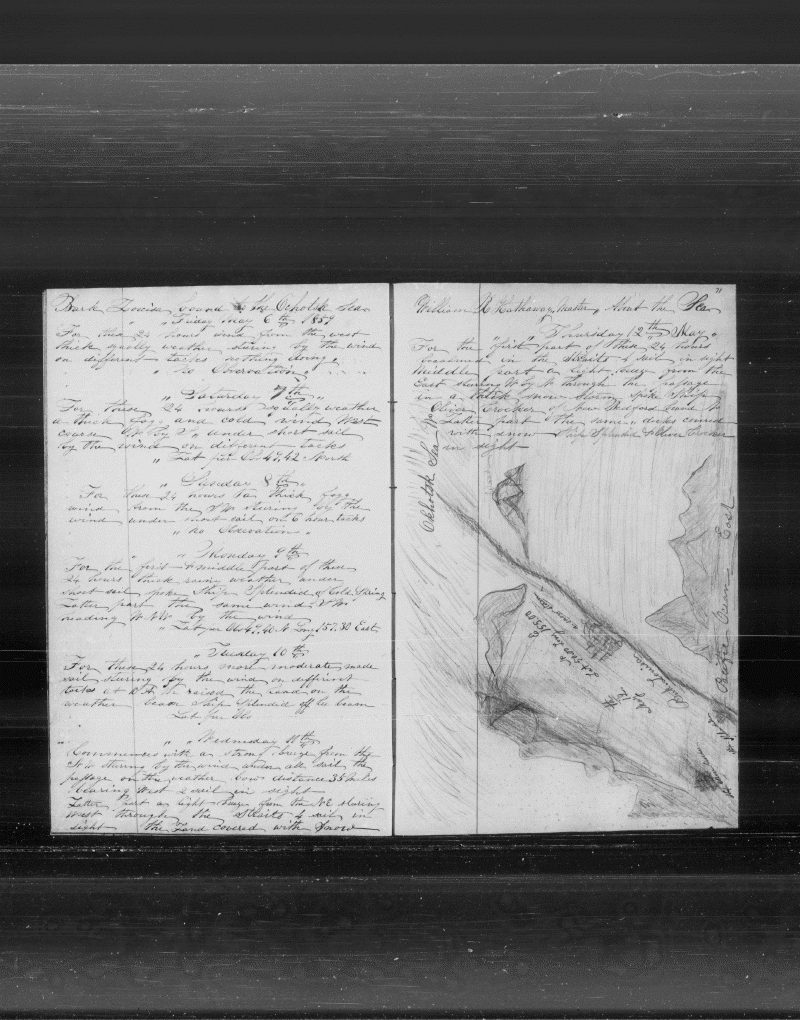 Bark Louisa bound to the Ochotsk Sea
" " Friday May 6th 1859
For these 24 hours wind from the west
thick squally weather stering by the wind
on different tacks nothing doing
" No Observation "
" Saturday 7th "
For these 24 squally weather
a thick fog and cold wind West
course by under short sail
by the wind on different tacks
" Lat per Obs 47,42 North
" 8th "
For these 24 hours thick fogg
wind from the stering by the
wind under short sail on 6 hour tacks
" No Obervation "
" Monday 9th
For the first & middle part of these
24 hours thick weather under
short sail spoke Ships Splendid & Cold Spring
Latter part the same wind
heading by the wind
" Lat per Obs 47,40 N Long 157,30 East
" Tuesday 10th
For these 24 hours most moderate made
sail stering by the wind on different
tacks at raised the Land on the
weather beam Ship Splendid off lee beam
Lat per Obs
" " Wednesday 11th
Commences with a strong breeze from the
stering by the wind under all sail the
passage on the weather bow distance 35 miles
bearing West 2 sail in sight
Latter part a light breeze from the NE stering
West through the Straits 4 sail in
sight the Land covered with Snow
71
William R Hathaway Master, About the Sea
Thursday 12th May
For the "first" part of these 24 hours
becalmed in the Straits 4 sail in sight
Middle part a light breeze from the
East stering W by N through the passage
in a thick snow storm spoke Ship
Oliver Crocker of New Bedford bound to
Latter part the same decks covered
with snow Ship Splendid & Oliver Crocker
in sight
Ochotsk Sea
Lat
Long 155,50
May 12
Bark Louisa
Pacific Ocean East